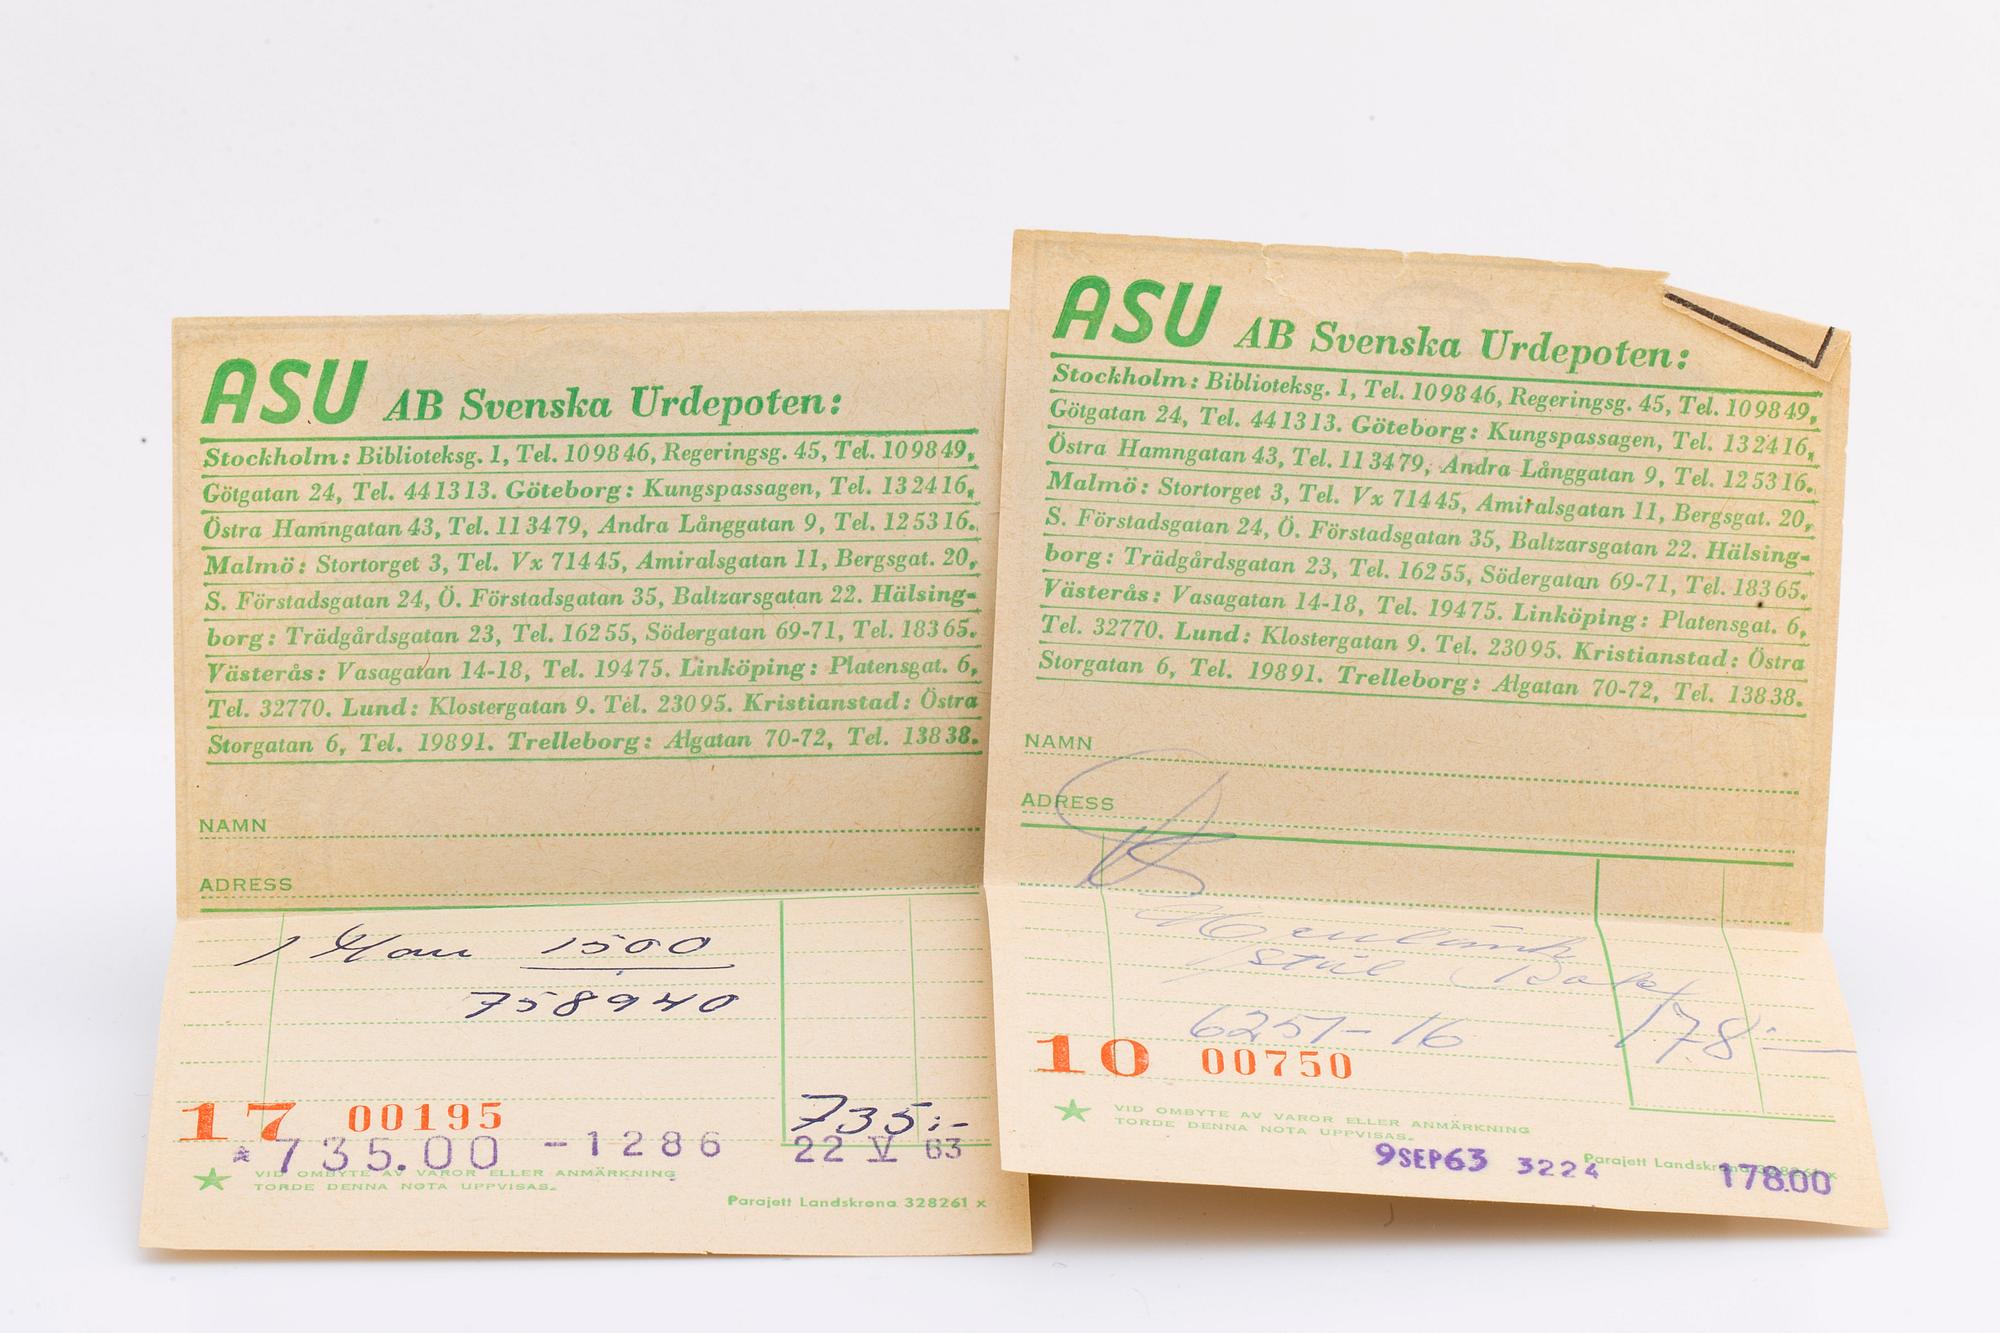 ASU AB Svenska Urdepoten:
Stockholm: Biblioteksg. 1, Tel. 109846, Regeringsg. 45, Tel. 109849,
Götgatan 24, Tel. 441313. Göteborg: Kungspassagen, Tel. 132416,
Östra Hamngatan 43, Tel. 113479, Andra Långgatan 9, Tel. 125316.
Malmö: Stortorget 3, Tel. Vx 71445, Amiralsgatan 11, Bergsgat. 20,
S. Förstadsgatan 24, Ö. Förstadsgatan 35, Baltzarsgatan 22. Hälsing-
borg: Trädgårdsgatan 23, Tel. 16255, Södergatan 69-71, Tel. 18365.
Västerås: Vasagatan 14-18, Tel. 19475. Linköping: Platensgat. 6,
Tel. 32770. Lund: Klostergatan 9. Tel. 23095. Kristianstad: Östra
Storgatan 6, Tel. 19891. Trelleborg: Algatan 70-72, Tel. 13838.
NAMN
ADRESS
1 1500
758940
735:-
17 00195
*735.00 -1286 22 V 63
VID OMBYTE AV VAROR ELLER ANMÄRKNING
TORDE DENNA NOTA UPPVISAS.
Parajett Landskrona 328261 x
ASU AB Svenska Urdepoten:
Stockholm: Biblioteksg. 1, Tel. 109846, Regeringsg. 45, Tel. 109849,
Götgatan 24, Tel. 441313. Göteborg: Kungspassagen, Tel. 132416,
Östra Hamngatan 43, Tel. 113479, Andra Långgatan 9, Tel. 125316.
Malmö: Stortorget 3, Tel. Vx 71445, Amiralsgatan 11, Bergsgat. 20,
S. Förstadsgatan 24, Ö. Förstadsgatan 35, Baltzarsgatan 22. Hälsing-
borg: Trädgårdsgatan 23, Tel. 16255, Södergatan 69-71, Tel. 18365.
Västerås: Vasagatan 14-18, Tel. 19475. Linköping: Platensgat. 6,
Tel. 32770. Lund: Klostergatan 9. Tel. 23095. Kristianstad: Östra
Storgatan 6, Tel. 19891. Trelleborg: Algatan 70-72, Tel. 13838.
NAMN
ADRESS
stål
6251-16 178:-
10 00750
VID OMBYTE AV VAROR ELLER ANMÄRKNING
TORDE DENNA NOTA UPPVISAS.
Parajett Landskrona 328261 x
9SEP63 3224 178.00